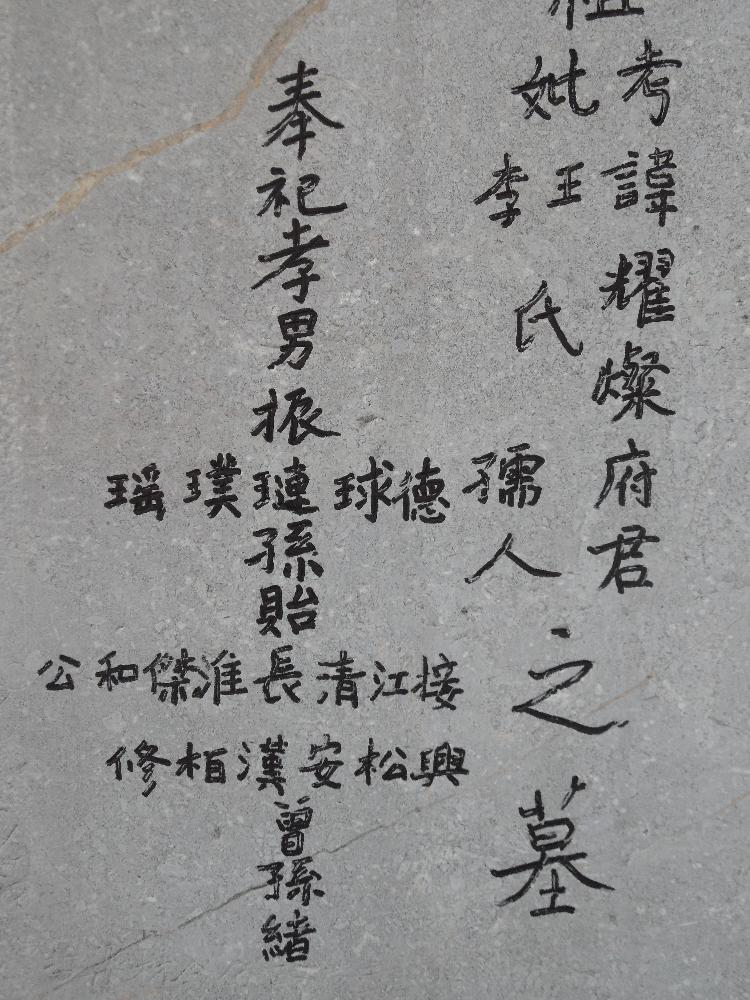 祖
考諱耀燦府君
妣王李氏孺人
之墓
奉祀孝男振
德球璉璞瑶
孫貽
接江清長淮傑和公
興松安漢柏修
曾孫緒